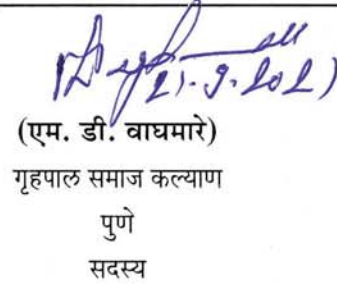 21.9.2021
(एम. डी. वाघमारे)
गृहपाल समाज कल्याण
पुणे
सदस्य